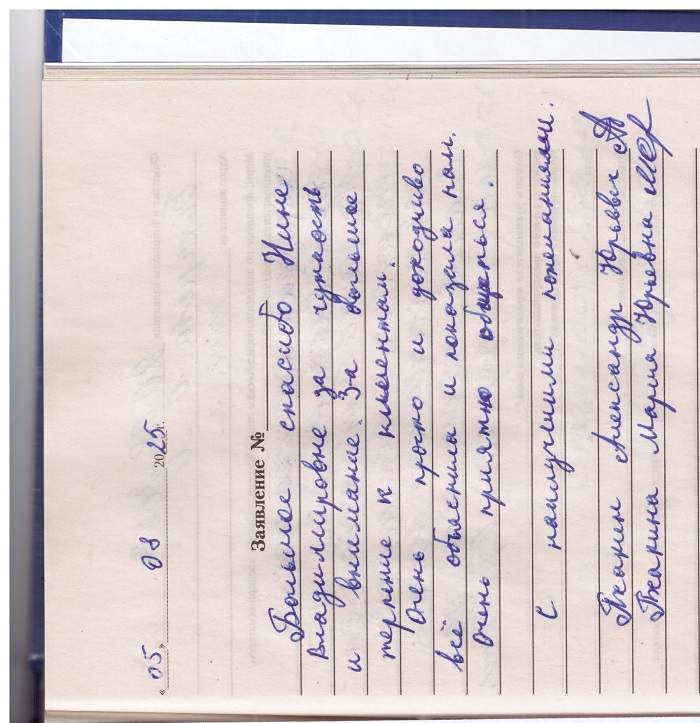 « 05 » 08 2025 г.
Заявление №
Большое спасибо Нине
Владимировне за чуткость
и внимание. За большое
терпение к клиентам.
Очень просто и доходчиво
всё объяснила и показала нам.
Очень приятно общаться.
С наилучшими пожеланиями.
Ткачин Александр Юрьевич
Ткачина Мария Юрьевна